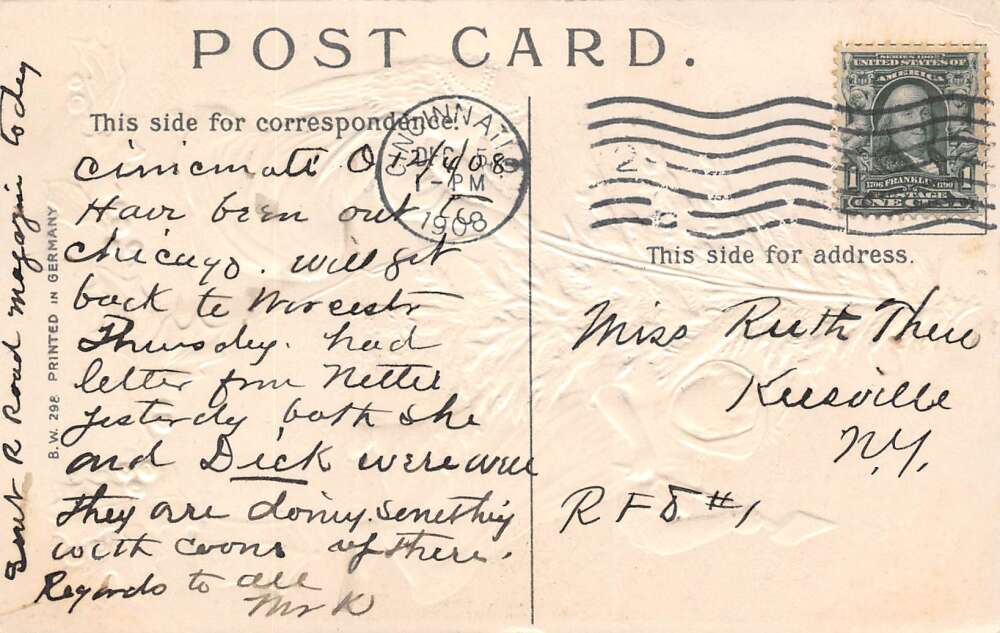 POST CARD.
This side for correspondence.
CINCINNATI
DEC 5
1-PM
1908
SERIES 1902
UNITED STATES OF
AMERICA
1706 FRANKLIN 1790
1 1
POSTAGE
ONE CENT
This side for address.
Cincinnati O 12/4/08
Have been out to
Chicago. Will get
back to Worcester
Thursday. had
letter from Nettie
yesterday both she
and Dick were well
They are doing something
with coons up there.
Regards to all
Mr K
Sent R Road magazine today
B.W. 298 PRINTED IN GERMANY
Miss Ruth Thew
Keesville
N.Y.
R F D #1